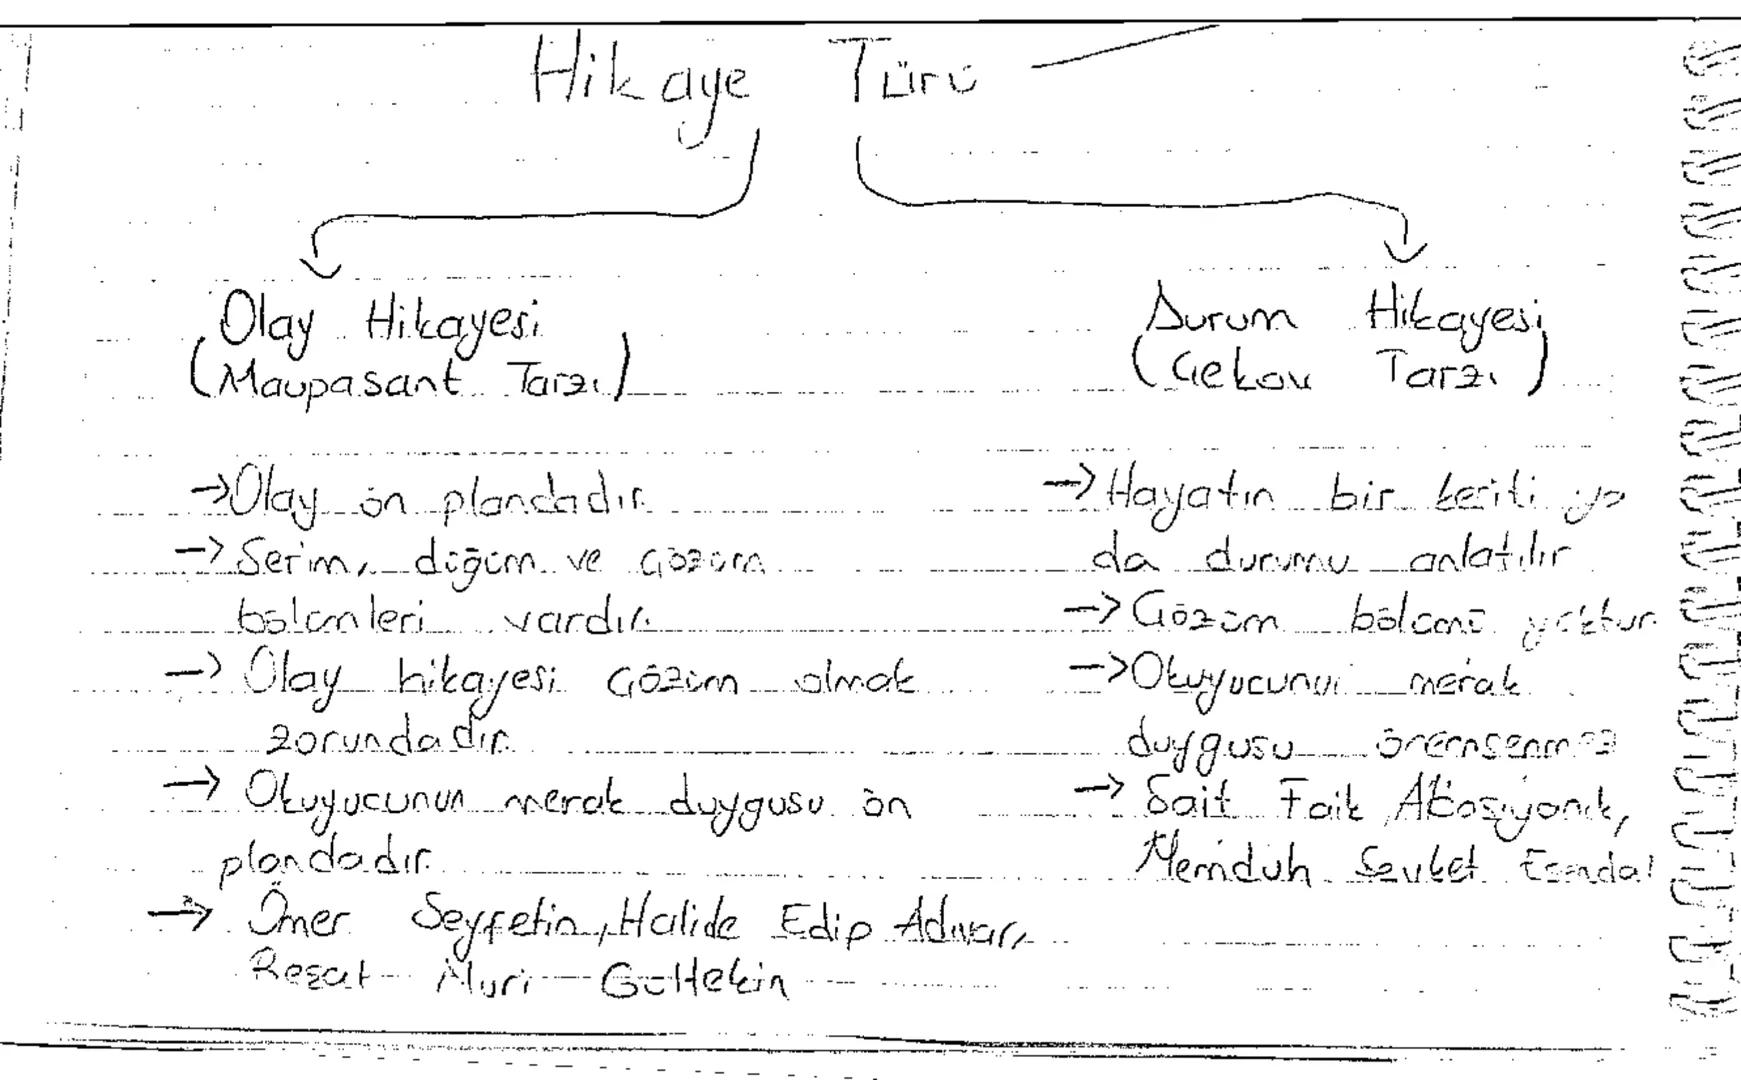 Hikaye Türü
Olay Hikayesi
(Maupasant Tarzı)
→Olay ön plandadır.
→Serim, düğüm ve çözüm
bölümleri vardır.
→ Olay hikayesi çözüm olmak
zorundadır.
→ Okuyucunun merak duygusu ön
plandadır.
→ Ömer Seyfetin, Halide Edip Adıvar,
Reşat Nuri Gültekin
Durum Hikayesi
(Çekov Tarzı)
→Hayatın bir kesiti ya
da durumu anlatılır
→Çözüm bölümü yoktur.
→Okuyucunun merak
duygusu önemsenmez
→ Sait Faik Abasıyanık,
Memduh Şevket Esendal